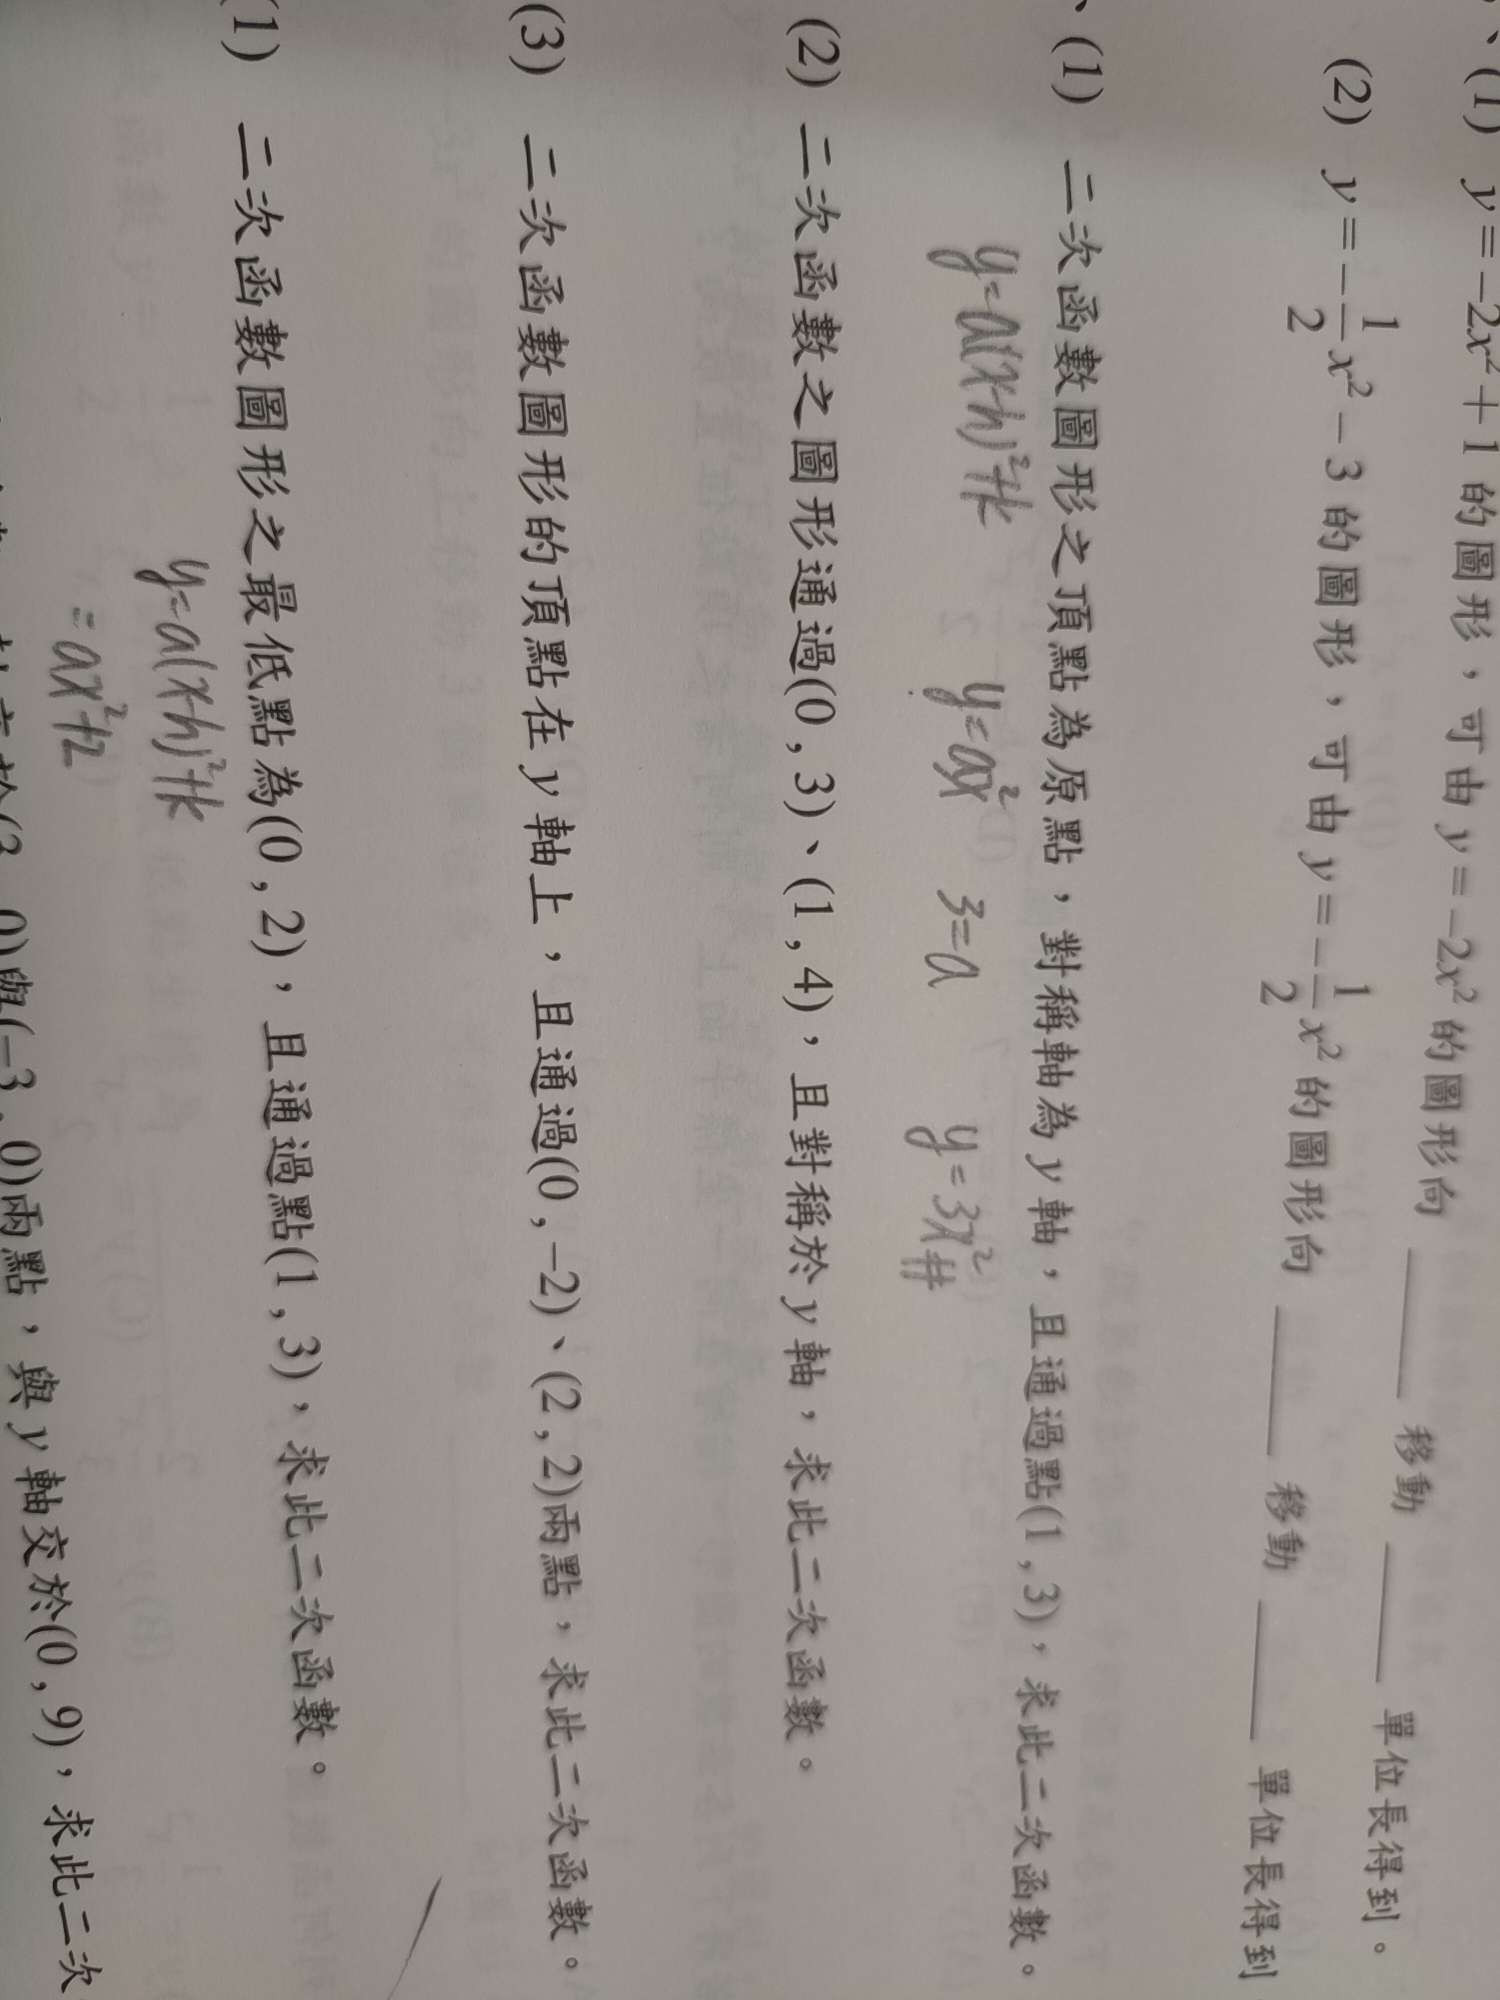 、(1) y=-2x²+1 的圖形，可由 y=-2x² 的圖形向 ____ 移動 ____ 單位長得到。
(2) y=-1/2x²-3 的圖形，可由 y=-1/2x² 的圖形向 ____ 移動 ____ 單位長得到
、(1) 二次函數圖形之頂點為原點，對稱軸為 y 軸，且通過點(1,3)，求此二次函數。
y=a(x+h)²+k y=ax² 3=a y=3x² #
(2) 二次函數之圖形通過(0,3)、(1,4)，且對稱於 y 軸，求此二次函數。
(3) 二次函數圖形的頂點在 y 軸上，且通過(0,-2)、(2,2)兩點，求此二次函數。
(1) 二次函數圖形之最低點為(0,2)，且通過點(1,3)，求此二次函數。
y=a(x+h)²+k
=ax²+2
0)與(-3,0)兩點，與 y 軸交於(0,9)，求此二次